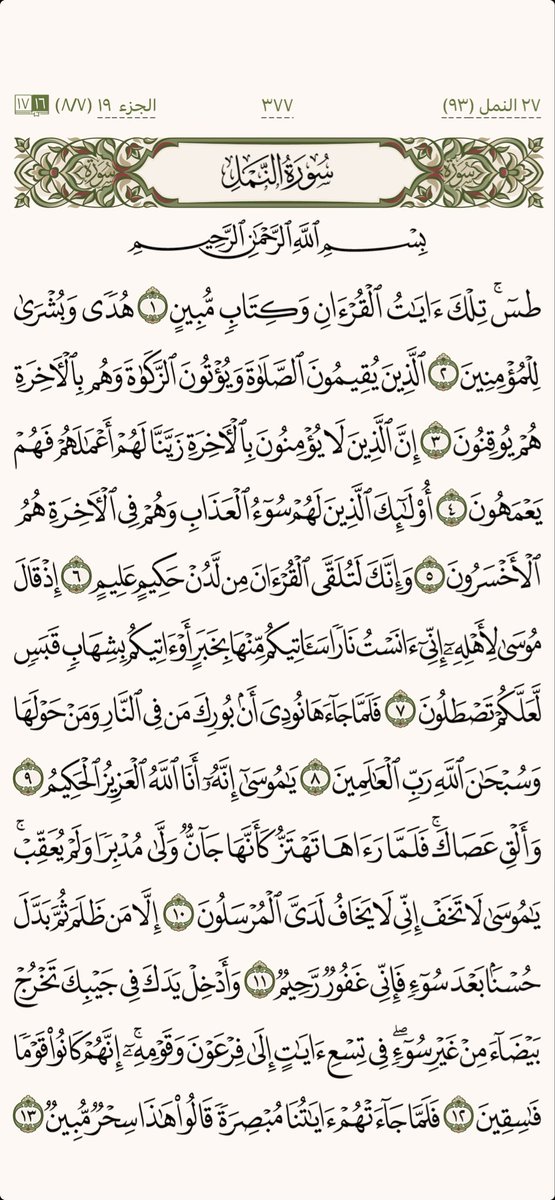 ٢٧ النمل (٩٣) ٣٧٧ الجزء ١٩ (٨/٧) ١٦ ١٧
سورة سُورَةُ النَّمۡلِ سورة
بِسۡمِ ٱللَّهِ ٱلرَّحۡمَٰنِ ٱلرَّحِيمِ
طسٓۚ تِلۡكَ ءَايَٰتُ ٱلۡقُرۡءَانِ وَكِتَابٖ مُّبِينٍ ١ هُدٗى وَبُشۡرَىٰ
لِلۡمُؤۡمِنِينَ ٢ ٱلَّذِينَ يُقِيمُونَ ٱلصَّلَوٰةَ وَيُؤۡتُونَ ٱلزَّكَوٰةَ وَهُم بِٱلۡأٓخِرَةِ
هُمۡ يُوقِنُونَ ٣ إِنَّ ٱلَّذِينَ لَا يُؤۡمِنُونَ بِٱلۡأٓخِرَةِ زَيَّنَّا لَهُمۡ أَعۡمَٰلَهُمۡ فَهُمۡ
يَعۡمَهُونَ ٤ أُوْلَٰٓئِكَ ٱلَّذِينَ لَهُمۡ سُوٓءُ ٱلۡعَذَابِ وَهُمۡ فِي ٱلۡأٓخِرَةِ هُمُ
ٱلۡأَخۡسَرُونَ ٥ وَإِنَّكَ لَتُلَقَّى ٱلۡقُرۡءَانَ مِن لَّدُنۡ حَكِيمٍ عَلِيمٍ ٦ إِذۡ قَالَ
مُوسَىٰ لِأَهۡلِهِۦٓ إِنِّيٓ ءَانَسۡتُ نَارٗا سَـَٔاتِيكُم مِّنۡهَا بِخَبَرٍ أَوۡ ءَاتِيكُم بِشِهَابٖ قَبَسٖ
لَّعَلَّكُمۡ تَصۡطَلُونَ ٧ فَلَمَّا جَآءَهَا نُودِيَ أَنۢ بُورِكَ مَن فِي ٱلنَّارِ وَمَنۡ حَوۡلَهَا
وَسُبۡحَٰنَ ٱللَّهِ رَبِّ ٱلۡعَٰلَمِينَ ٨ يَٰمُوسَىٰٓ إِنَّهُۥٓ أَنَا ٱللَّهُ ٱلۡعَزِيزُ ٱلۡحَكِيمُ ٩
وَأَلۡقِ عَصَاكَۚ فَلَمَّا رَءَاهَا تَهۡتَزُّ كَأَنَّهَا جَآنّٞ وَلَّىٰ مُدۡبِرٗا وَلَمۡ يُعَقِّبۡۚ
يَٰمُوسَىٰ لَا تَخَفۡ إِنِّي لَا يَخَافُ لَدَيَّ ٱلۡمُرۡسَلُونَ ١٠ إِلَّا مَن ظَلَمَ ثُمَّ بَدَّلَ
حُسۡنَۢا بَعۡدَ سُوٓءٖ فَإِنِّي غَفُورٞ رَّحِيمٞ ١١ وَأَدۡخِلۡ يَدَكَ فِي جَيۡبِكَ تَخۡرُجۡ
بَيۡضَآءَ مِنۡ غَيۡرِ سُوٓءٖۖ فِي تِسۡعِ ءَايَٰتٍ إِلَىٰ فِرۡعَوۡنَ وَقَوۡمِهِۦٓۚ إِنَّهُمۡ كَانُواْ قَوۡمٗا
فَٰسِقِينَ ١٢ فَلَمَّا جَآءَتۡهُمۡ ءَايَٰتُنَا مُبۡصِرَةٗ قَالُواْ هَٰذَا سِحۡرٞ مُّبِينٞ ١٣